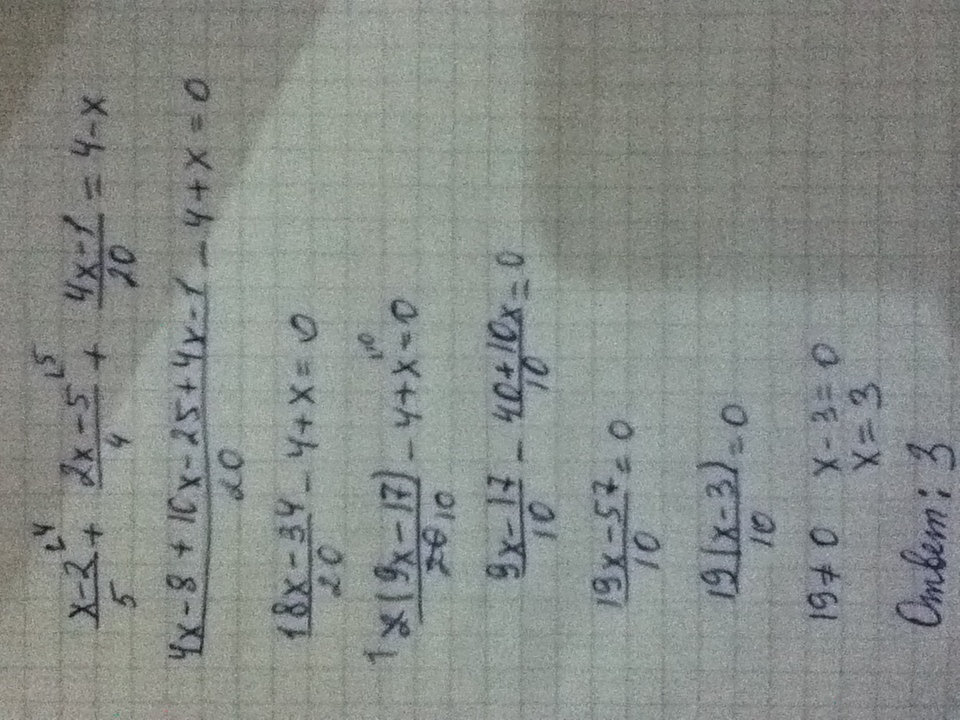 x-2/5 ⌞4 + 2x-5/4 ⌞5 + 4x-1/20 = 4-x
4x-8+10x-25+4x-1/20 - 4+x=0
18x-34/20 - 4+x=0
1 2(9x-17)/20 10 - 4+x ⌞10 =0
9x-17/10 - 40+10x/10 =0
19x-57/10 =0
19(x-3)/10 =0
19≠0 x-3=0
x=3
Ответ: 3